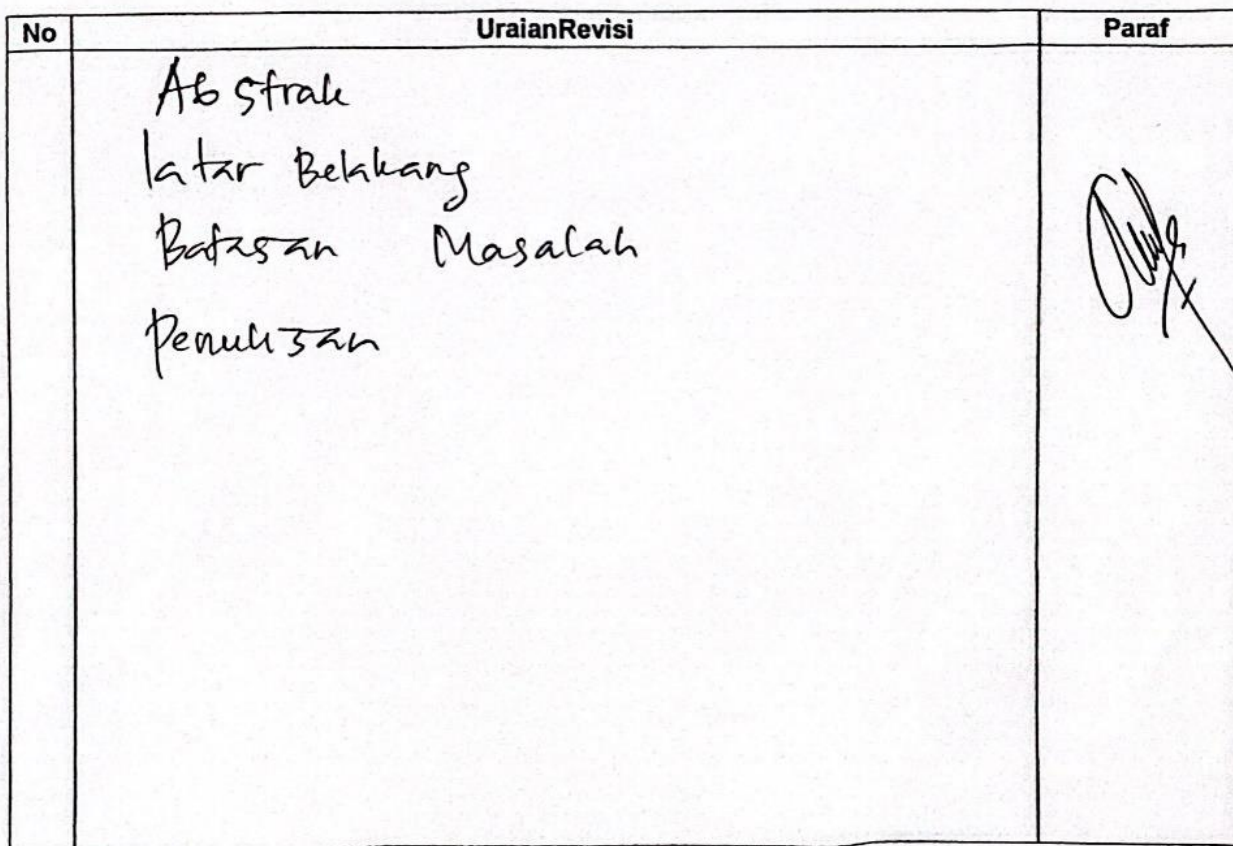 No UraianRevisi Paraf
Abstrak
latar Belakang
Batasan Masalah
Penulisan